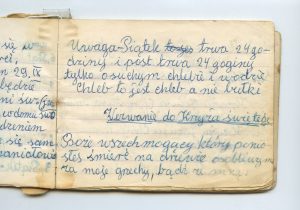 się w
29. IX
będzie
w domu
dzinam
się sam
Uwaga-Piątek trwa 24 go-
dziny i post trwa 24 godziny
tylko o suchym chlebie i wodzie
Chleb to jest chleb a nie bułki
Wezwanie do Krzyża świętego
Boże wszechmogący który ponio-
słeś śmierć na drzewie
za moje grzechy, bądź z